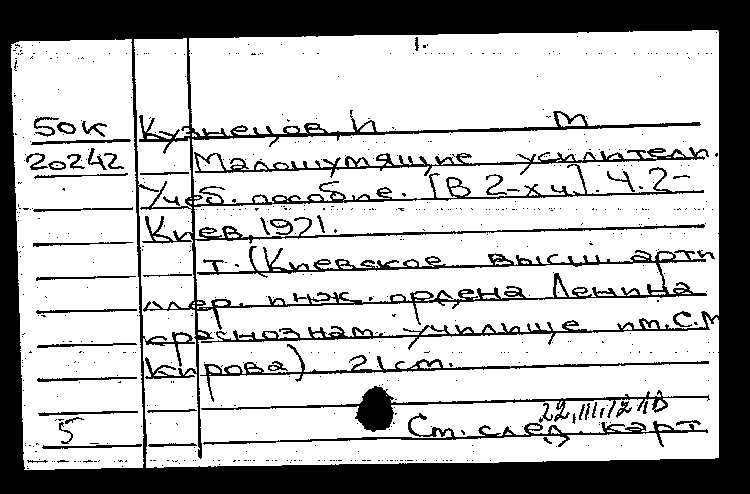 1.
50К Кузнецов, И. М
20242 Малошумящие усилители.
Учеб. пособие. [В 2-х ч.]. Ч. 2-
Киев, 1971.
т. (Киевское высш. арти
ллер. инж. ордена Ленина
краснознам. училище им. С. М
Кирова). 21 см.
22.III.72
5 См. след. карт